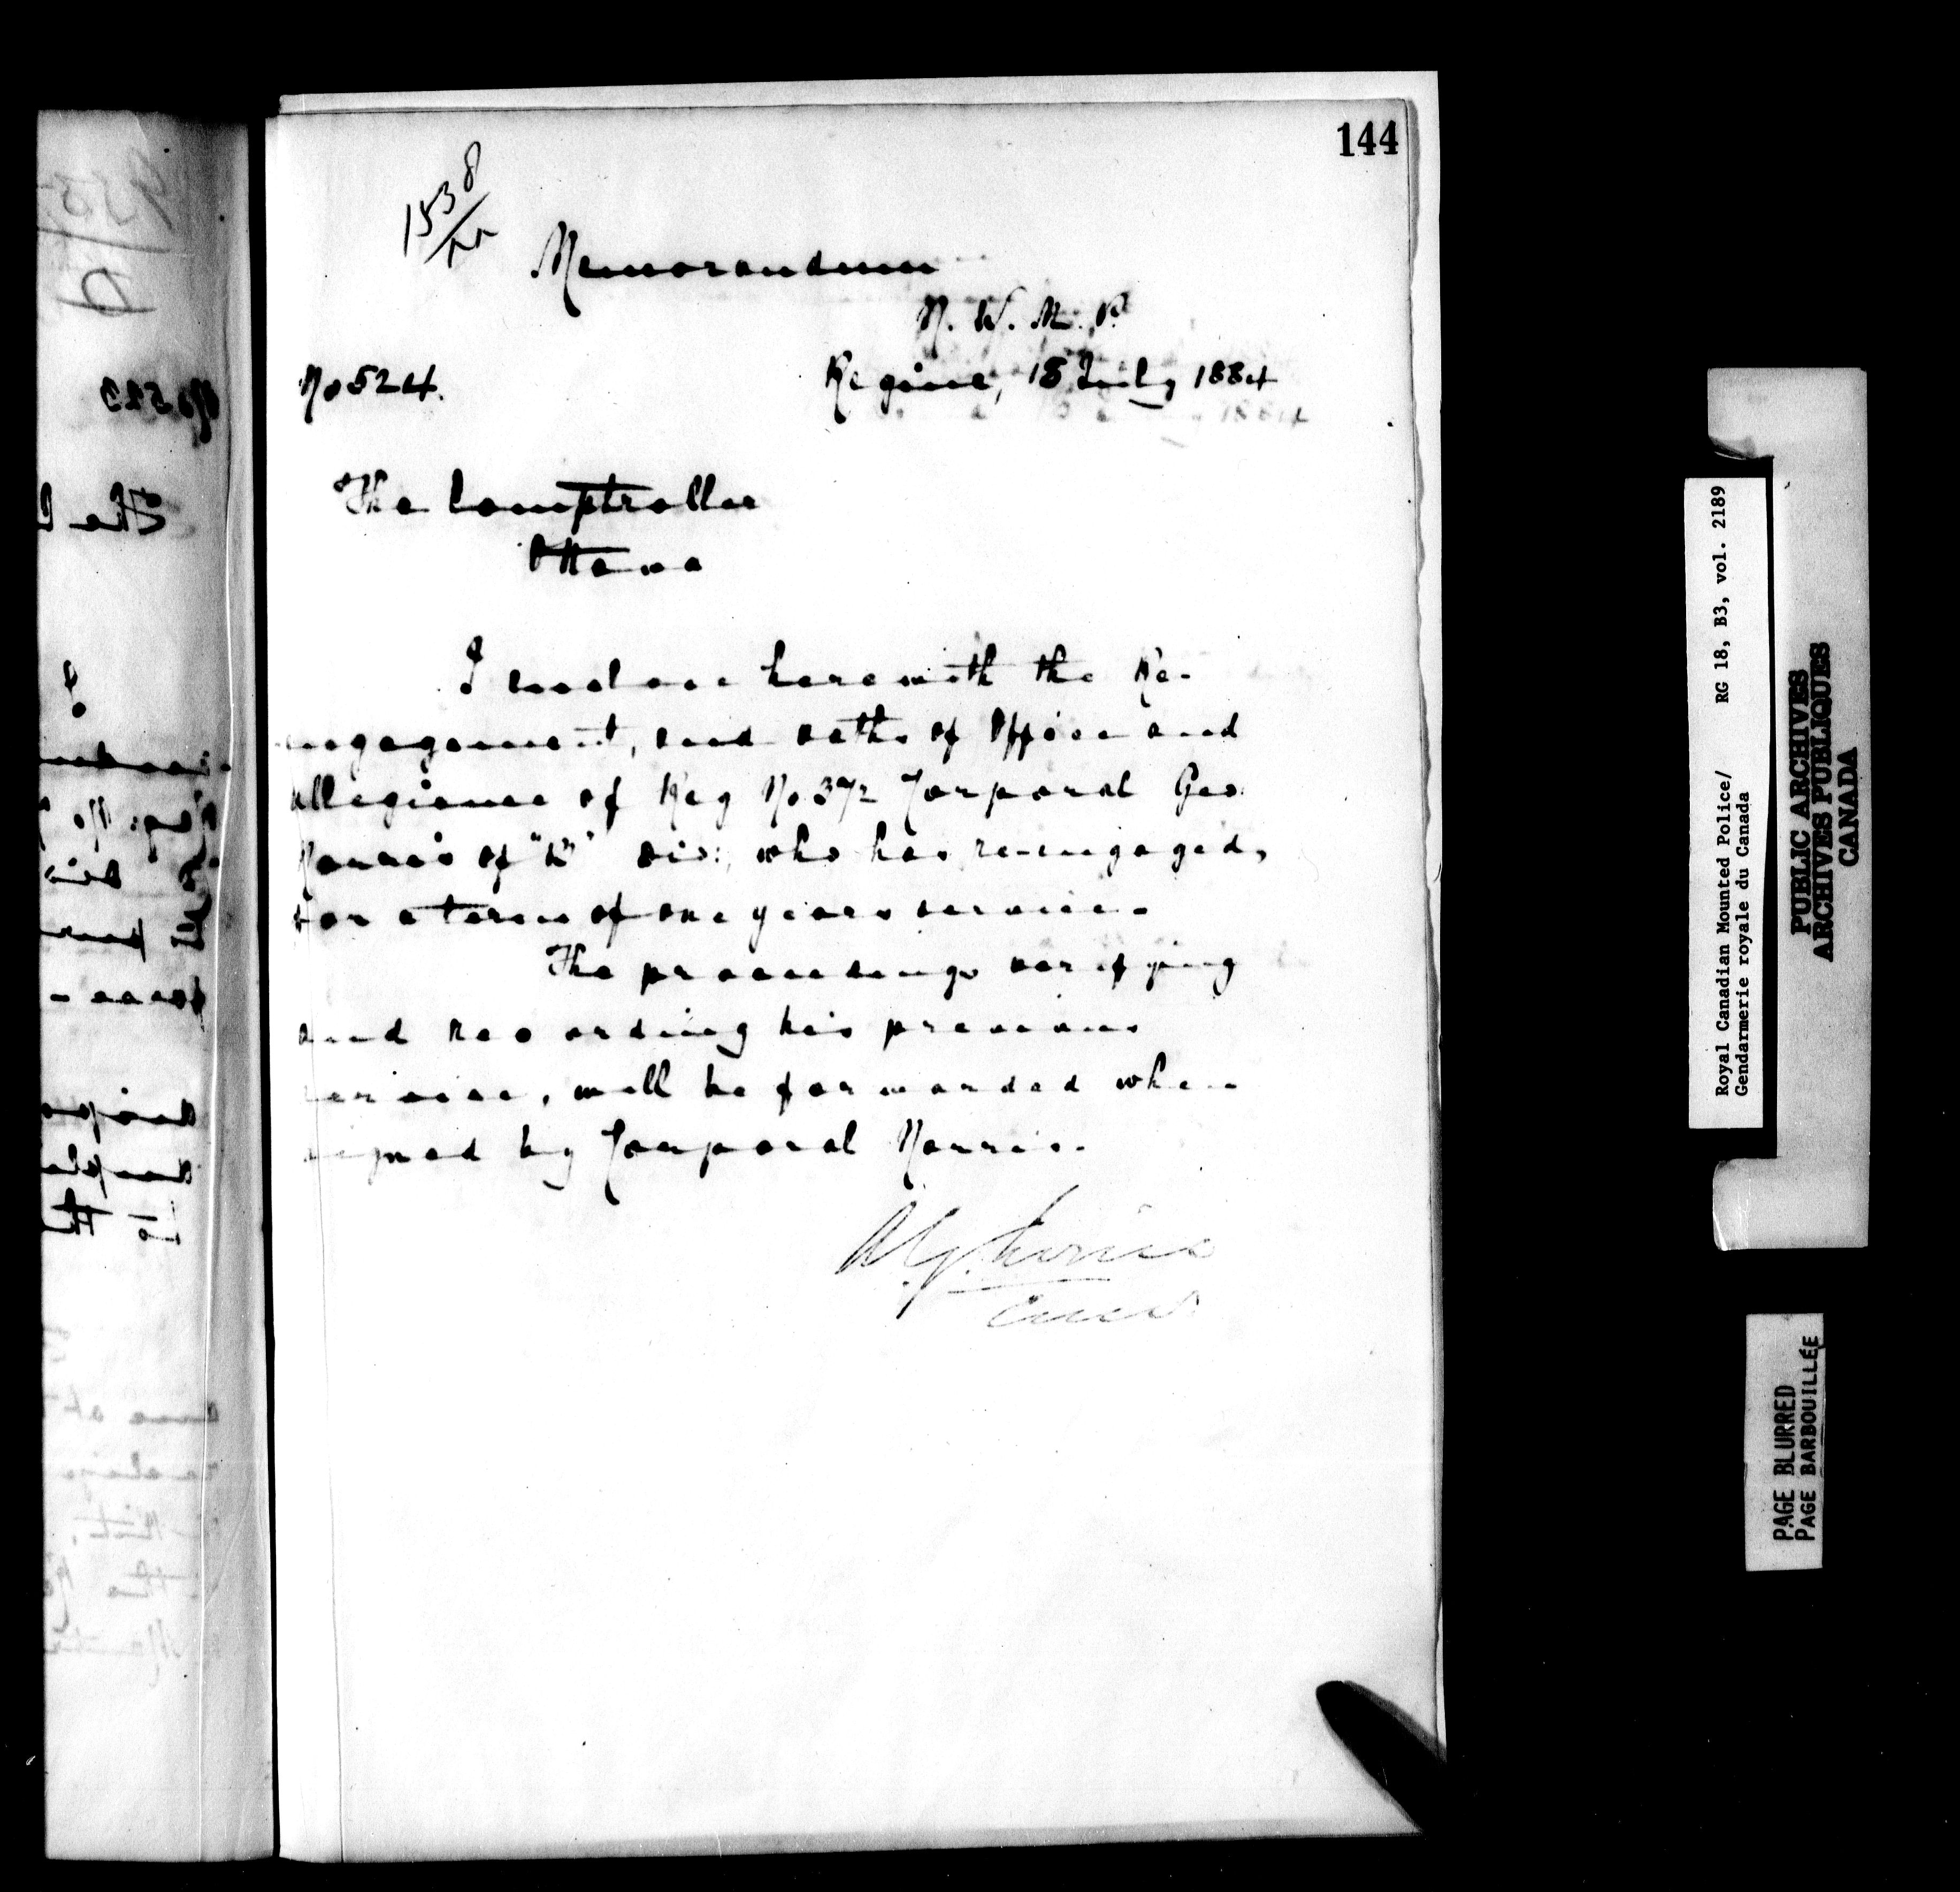 144
1538
Memorandum
N. W. M. P.
No 524.
Regina, 18 July 1884
The Comptroller
Ottawa
I enclose herewith the Re-
engagement, and oaths of Office and
allegiance of Reg No 372 Corporal Geo:
Norris of "B" Div:, who has re-engaged,
for a term of one years service.
The proceedings verifying
and recording his previous
service, will be forwarded when
signed by Corporal Norris.
A. G. Irvine
Royal Canadian Mounted Police/ RG 18, B3, vol. 2189
Gendarmerie royale du Canada
PUBLIC ARCHIVES
ARCHIVES PUBLIQUES
CANADA
PAGE BLURRED
PAGE BARBOUILLÉE